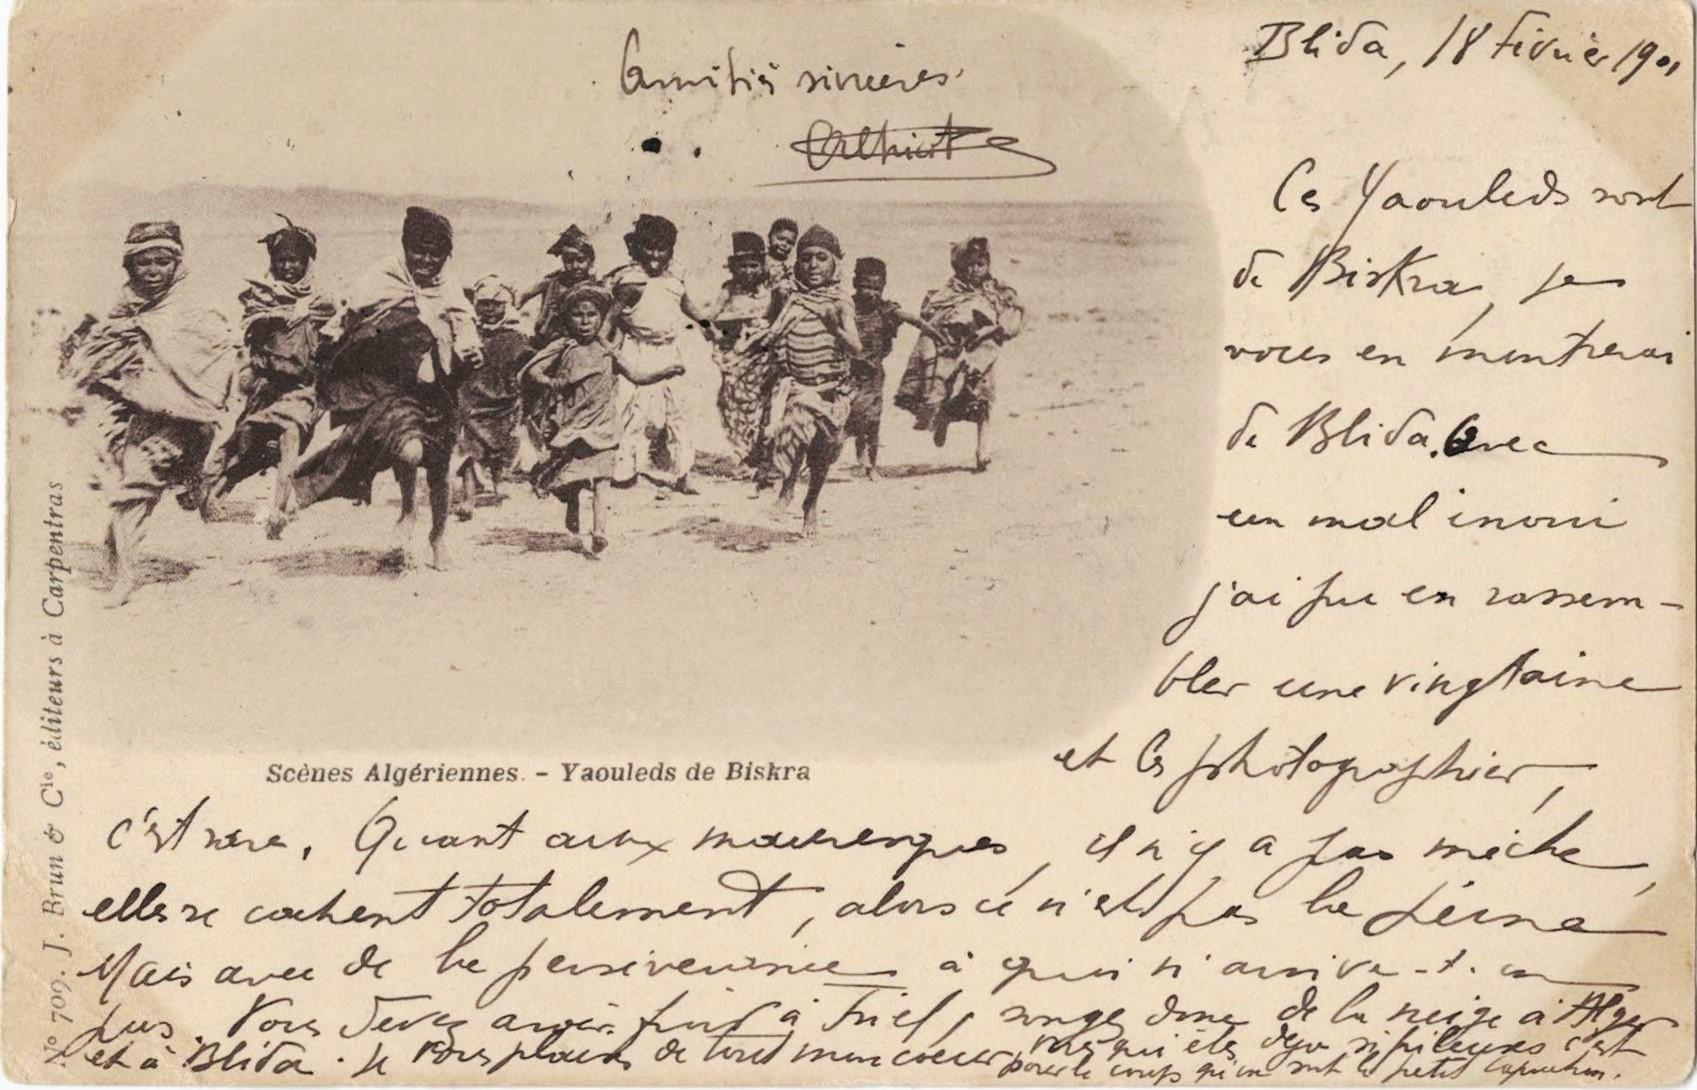 Blida, 18 Février 1901
Amitiés sincères.
Ces Yaouleds sont
de Biskra, je
vous en montrerai
de Blida. Avec
un mal inoui
j'ai pu en rassem-
bler une vingtaine
et les photographier,
Scènes Algériennes. - Yaouleds de Biskra
c'est rare. Quant aux mauresques, il n'y a pas mèche,
elles se cachent totalement, alors ce n'est pas la peine
Mais avec de la persévérance à quoi n'arrive-t-on
pas. Vous devez avoir froid à Triel, songez donc de la neige à Alger
et à Blida. Je vous plains de tout mon coeur, vous qui êtes déjà si frileuse c'est
pour le coup qu'on sort le petit capuchon.
No 709. J. Brun & Cie, éditeurs à Carpentras